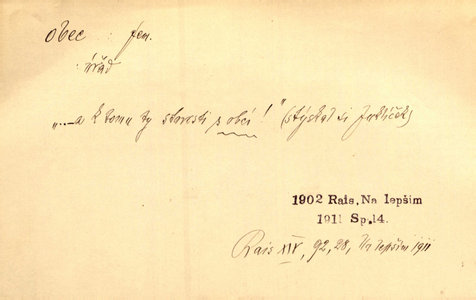 obec : fem.
: úřad
"... a k tomu ty starosti s obcí!" (stýskal si
1902 Rais, Na lepším
1911 Sp.14.
Rais XIV, 92, 28, Na lepším 1911